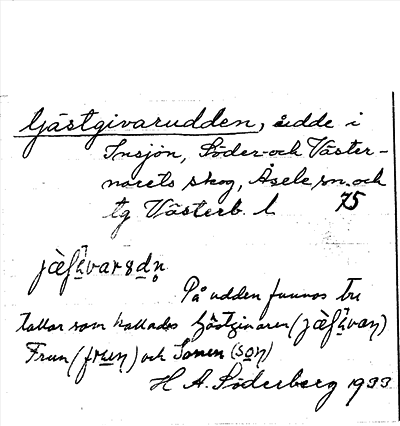 Gästgivarudden, udde i
Insjön, Söder- och Väster-
norets skog, Åsele sn. och
tg Västerb. l 75
På udden funnos tre
tallar som kallades Gästgivaren
Frun och Sonen
H A. Söderberg 1933